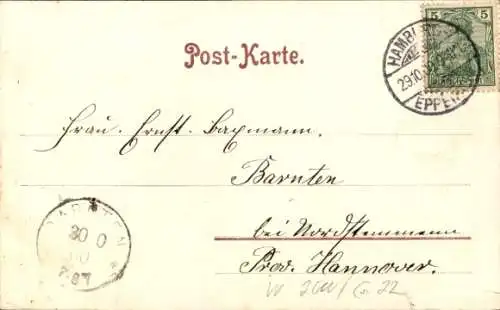 Post-Karte.
5 5
HAMBURG
29.10.
EPPEN
Frau Ernst Baxmann.
Barnten
bei Nordstemmen
Prov. Hannover.
BARNTEN
30 0
G. 22